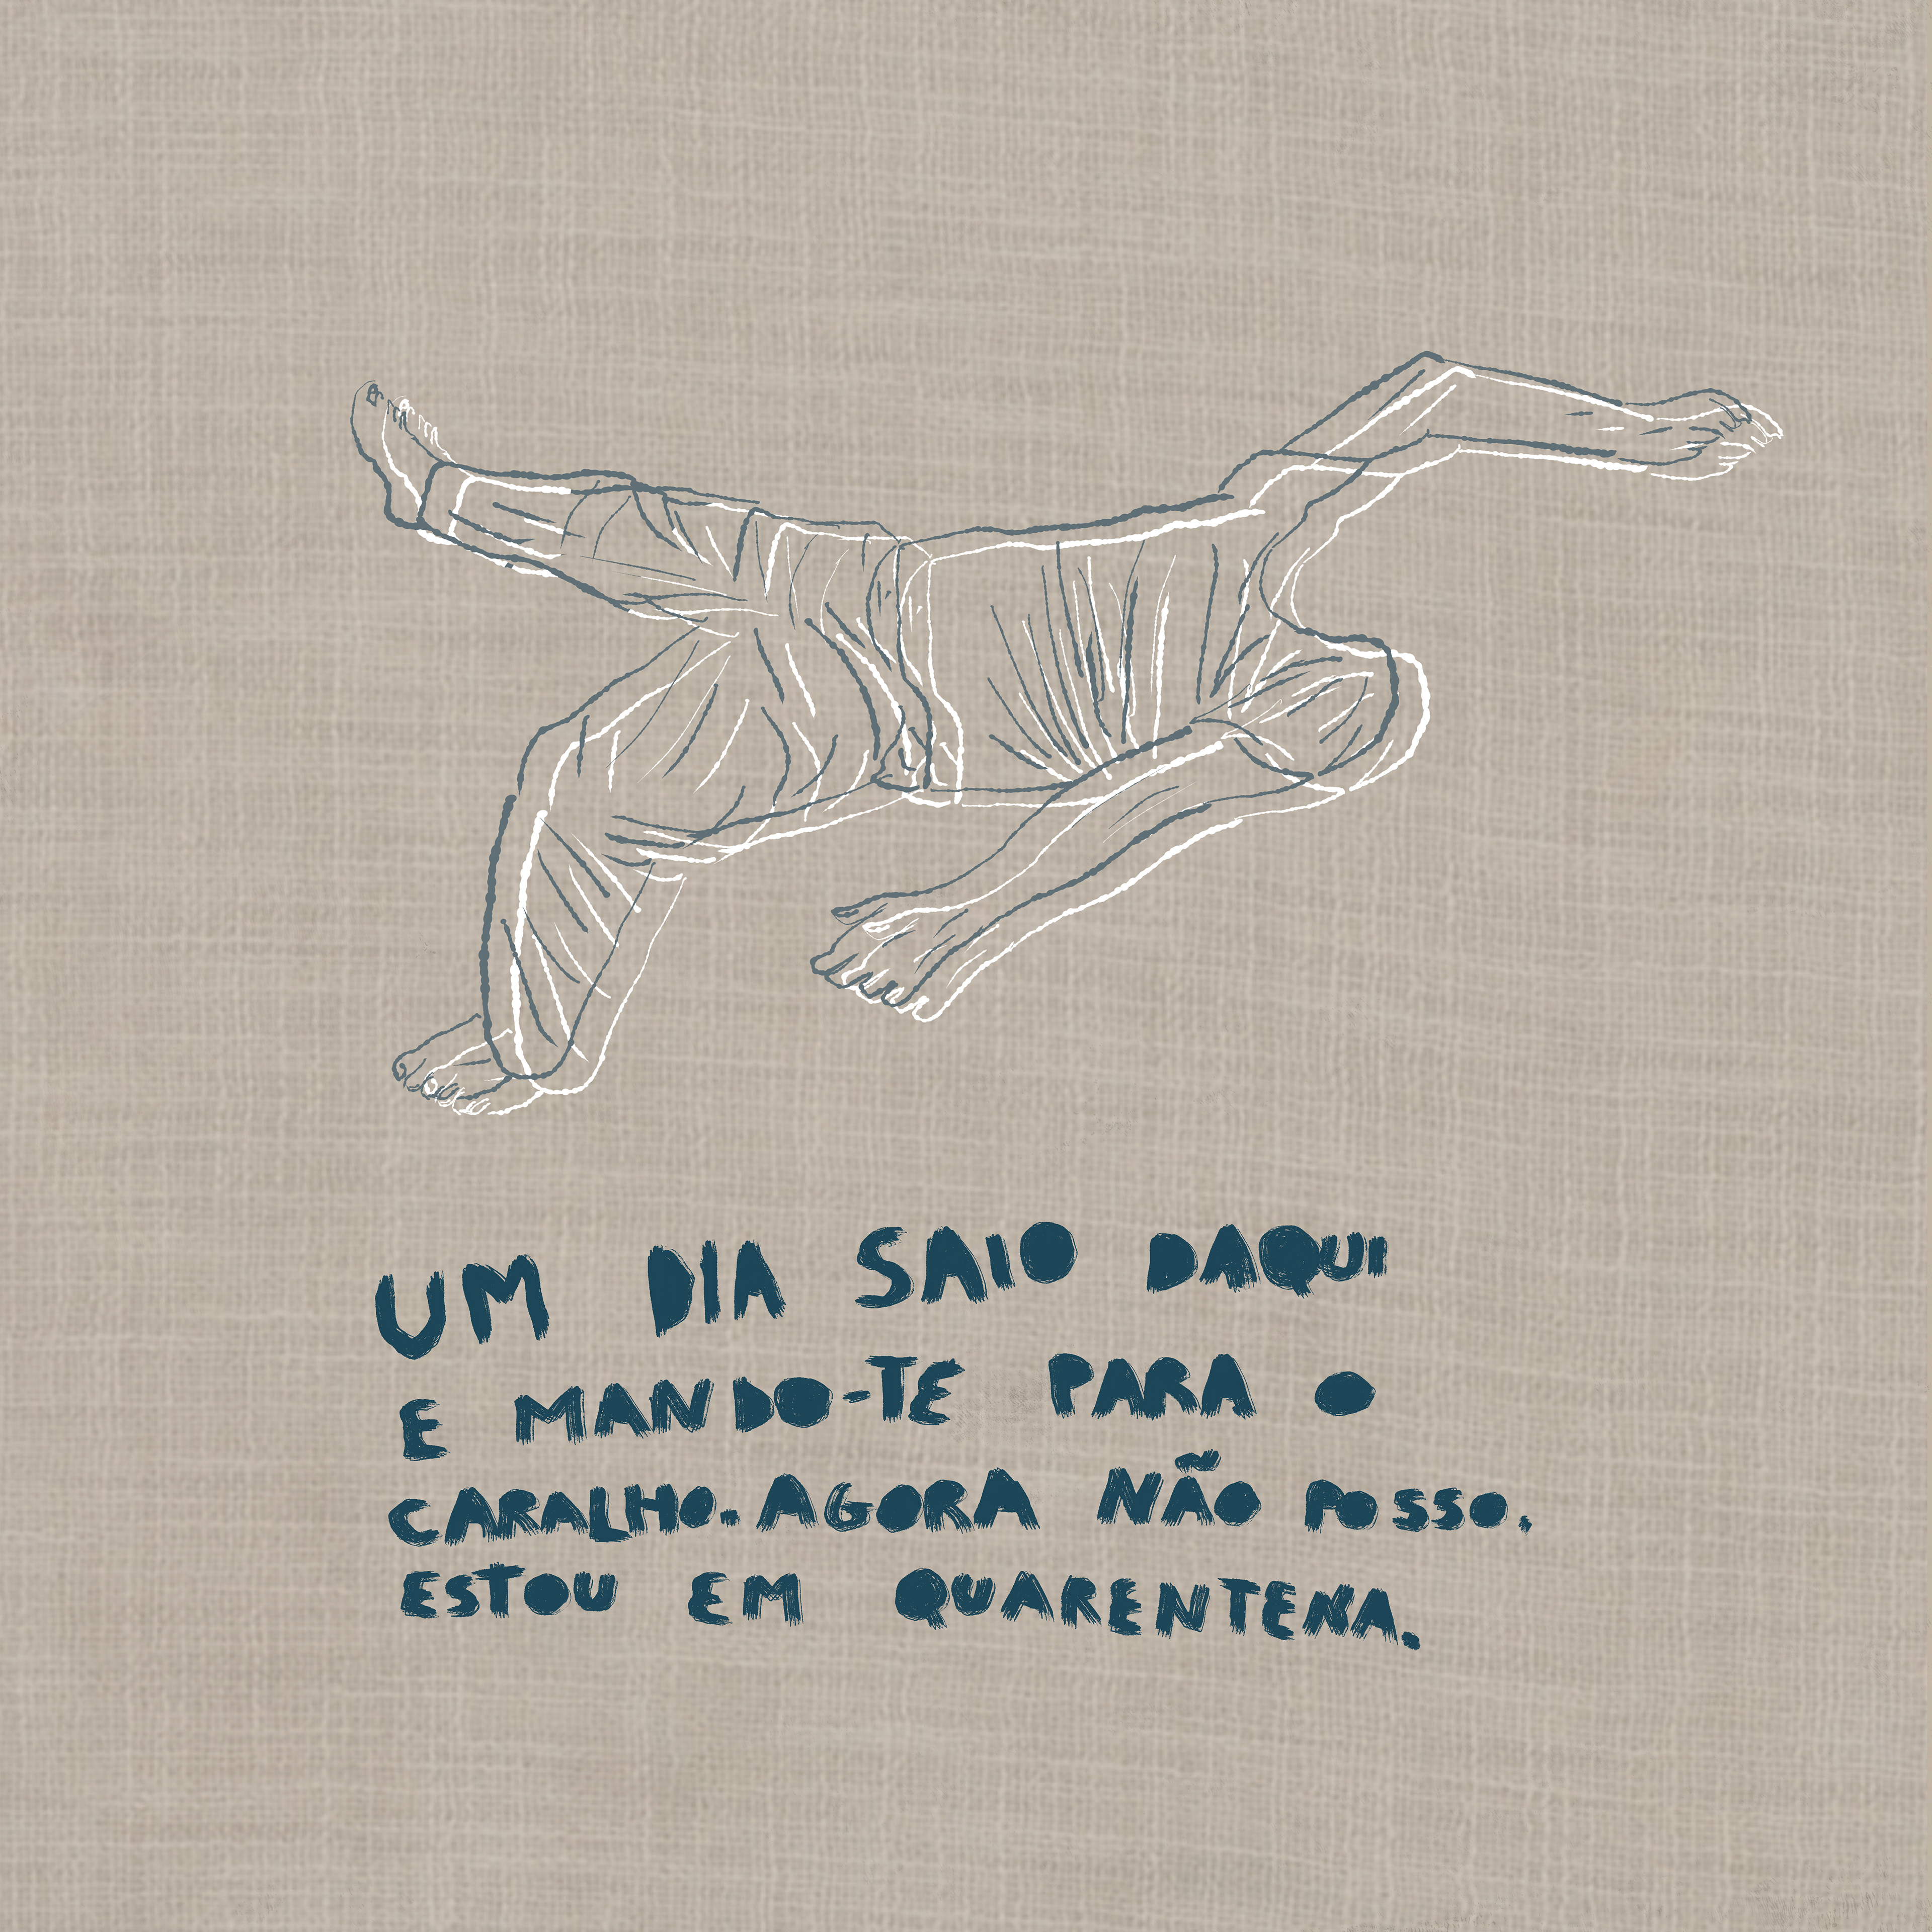 UM DIA SAIO DAQUI
E MANDO-TE PARA O
CARALHO. AGORA NÃO POSSO.
ESTOU EM QUARENTENA.